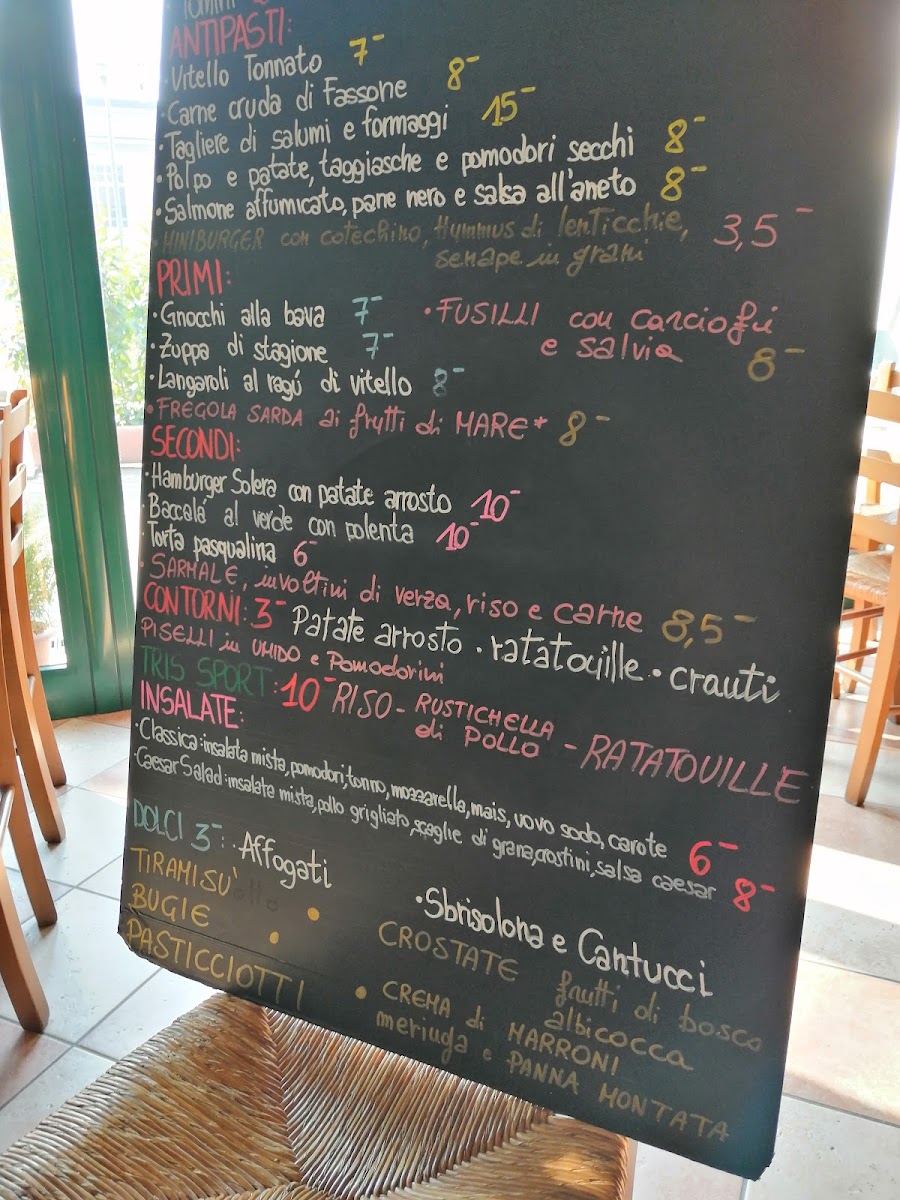 ANTIPASTI:
· Vitello Tonnato 7-
· Carne cruda di Fassone 8-
· Tagliere di salumi e formaggi 15-
· Polpo e patate, taggiasche e pomodori secchi 8-
· Salmone affumicato, pane nero e salsa all'aneto 8-
· MINIBURGER con cotechino, Hummus di lenticchie, 3,5-
senape in grani
PRIMI:
· Gnocchi alla bava 7-
· Zuppa di stagione 7-
· Langaroli al ragú di vitello 8-
· FUSILLI con carciofi
e salvia 8-
· FREGOLA SARDA ai frutti di MARE* 8-
SECONDI:
· Hamburger Solera con patate arrosto 10-
· Baccalá al verde con polenta 10-
· Torta pasqualina 6-
· SARMALE, involtini di verza, riso e carne 8,5-
CONTORNI: 3- Patate arrosto · ratatouille · crauti
PISELLI in UMIDO e Pomodorini
TRIS SPORT: 10- RISO - RUSTICHELLA
di POLLO - RATATOUILLE
INSALATE:
· Classica: insalata mista, pomodori, tonno, mozzarella, mais, uovo sodo, carote 6-
· Caesar Salad: insalata mista, pollo grigliato, scaglie di grana, crostini, salsa caesar 8-
DOLCI 3-: · Affogati
TIRAMISU'
BUGIE
PASTICCIOTTI
· Sbrisolona e Cantucci
CROSTATE frutti di bosco
albicocca
· CREMA di MARRONI
meriuga e PANNA MONTATA